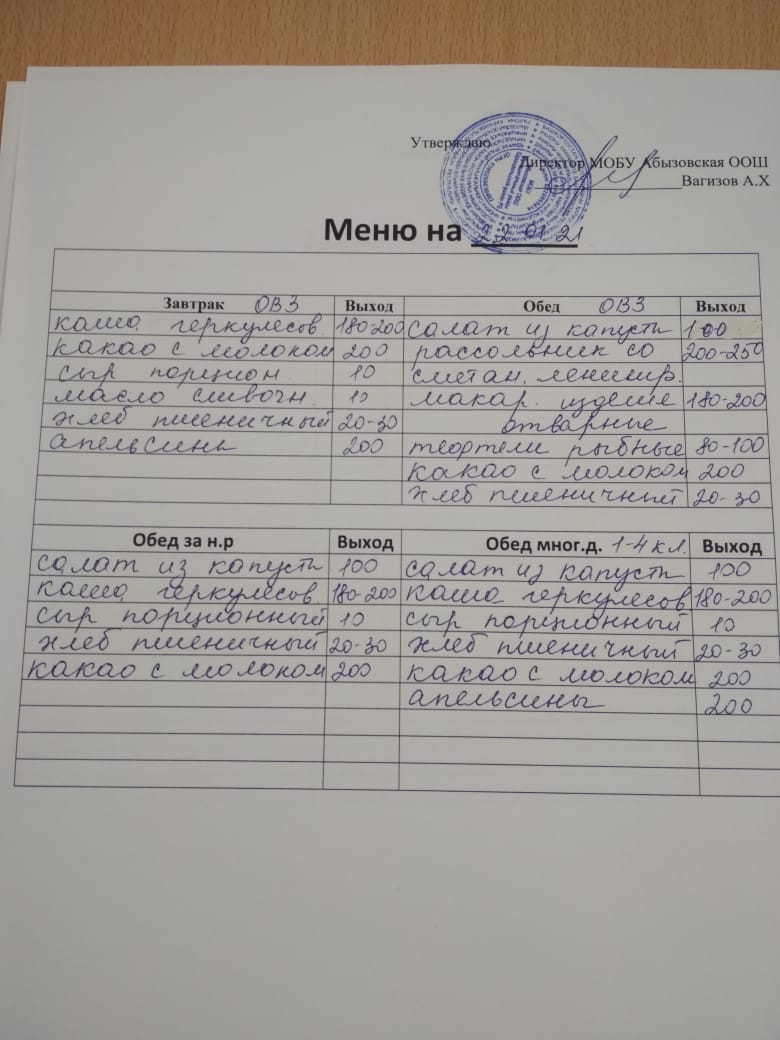 Утверждаю
Директор МОБУ Абызовская ООШ
Вагизов А.Х
Меню на 22 01 21
Завтрак ОВЗ Выход Обед ОВЗ Выход
каша геркулесов. 180-200 салат из капусты 100
какао с молоком 200 рассольник со 200-250
сыр порцион. 10 сметан. ленингр.
масло сливочн. 10 макар. изделие 180-200
хлеб пшеничный 20-30 отварные
апельсины 200 тефтели рыбные 80-100
какао с молоком 200
хлеб пшеничный 20-30
Обед за н.р Выход Обед мног.д. 1-4 кл. Выход
салат из капусты 100 салат из капусты 100
каша геркулесов. 180-200 каша геркулесов 180-200
сыр порционный 10 сыр порционный 10
хлеб пшеничный 20-30 хлеб пшеничный 20-30
какао с молоком 200 какао с молоком 200
апельсины 200